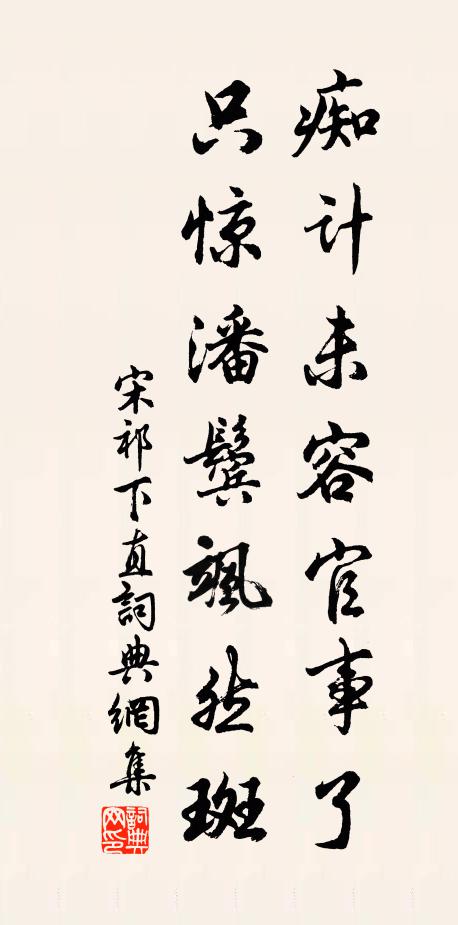 痴计未容官事了
只惊潘鬓飒然斑
宋祁下直詞典網集
詞典网印